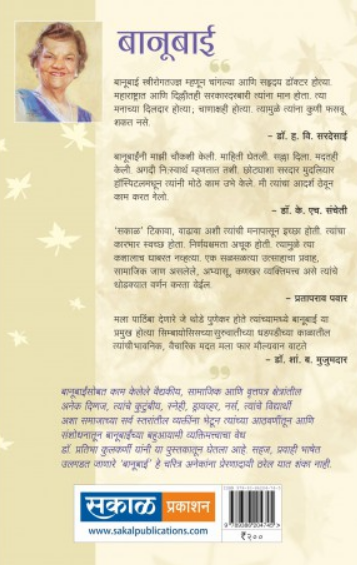 बानूबाई
बानूबाई स्त्रीरोगतज्ज्ञ म्हणून चांगल्या आणि सहृदय डॉक्टर होत्या.
महाराष्ट्रात आणि दिल्लीतही सरकारदरबारी त्यांना मान होता. त्या
मनाच्या दिलदार होत्या; चाणाक्षही होत्या. त्यामुळे त्यांना कुणी फसवू
शकत नसे.
- डॉ. ह. वि. सरदेसाई
बानूबाईंनी माझी चौकशी केली. माहिती घेतली. सल्ला दिला. मदतही
केली. अगदी निःस्वार्थ म्हणतात तशी. छोट्याशा सरदार मुदलियार
हॉस्पिटलमधून त्यांनी मोठे काम उभे केले. मी त्यांचा आदर्श ठेवून
काम करत गेलो.
- डॉ. के. एच. संचेती
'सकाळ' टिकावा, वाढावा अशी त्यांची मनापासून इच्छा होती. त्यांचा
कारभार स्वच्छ होता. निर्णयक्षमता अचूक होती. त्यामुळे त्या
कशालाच घाबरत नव्हत्या. एक सळसळत्या उत्साहाचा प्रवाह,
सामाजिक जाण असलेले, अभ्यासू, कणखर व्यक्तिमत्त्व असे त्यांचे
थोडक्यात वर्णन करता येईल.
- प्रतापराव पवार
मला पाठिंबा देणारे जे थोडे पुणेकर होते त्यांच्यामध्ये बानूबाई या
प्रमुख होत्या सिम्बायोसिसच्या सुरुवातीच्या धडपडीच्या काळातील
त्यांची भावनिक, वैचारिक मदत मला फार मौल्यवान वाटते
- डॉ. शां. ब. मुजुमदार
बानूबाईंसोबत काम केलेले वैद्यकीय, सामाजिक आणि वृत्तपत्र क्षेत्रांतील
अनेक दिग्गज, त्यांचे कुटुंबीय, स्नेही, ड्रायव्हर, नर्स, त्यांचे विद्यार्थी
अशा समाजाच्या सर्व स्तरांतील व्यक्तींना भेटून त्यांच्या आठवणींतून आणि
संशोधनातून बानूबाईंच्या बहुआयामी व्यक्तिमत्त्वाचा वेध
डॉ. प्रतिभा कुलकर्णी यांनी या पुस्तकातून घेतला आहे. सहज, प्रवाही भाषेत
उलगडत जाणारे 'बानूबाई' हे चरित्र अनेकांना प्रेरणादायी ठरेल यात शंका नाही.
सकाळ प्रकाशन
www.sakalpublications.com
₹२००